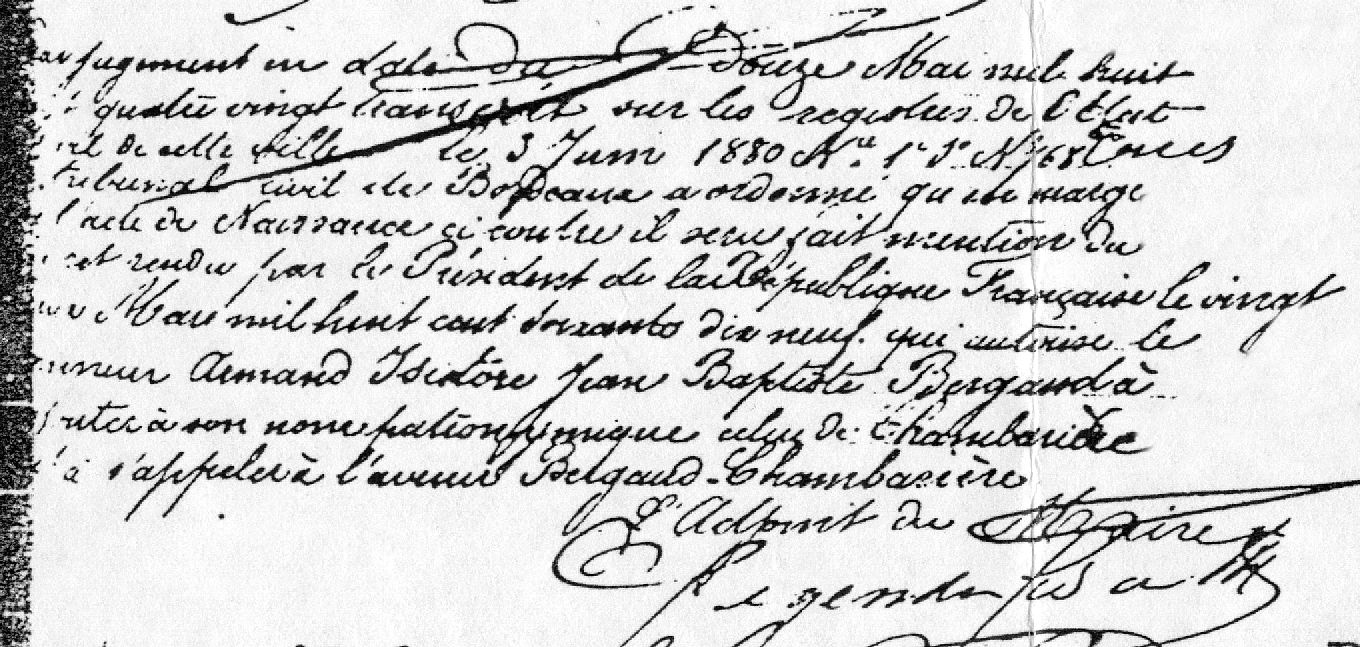 Par jugement en date du douze Mai mil huit
quatre vingt transcrit sur les registres de l'Etat
civil de cette ville le 3 Juin 1880 Non. 1e So. No 168
tribunal civil de Bordeaux a ordonné qu'en marge
l'acte de Naissance ci contre il sera fait mention du
rendu par le Président de la République Française le vingt
Mai mil huit cent soixante dix neuf. qui autorise le
Armand Isidore Jean Baptiste Bergaud à
à son nom patronymique celui de Chambarière
à s'appeler à l'avenir Bergaud-Chambarière
L'Adjoint du Maire